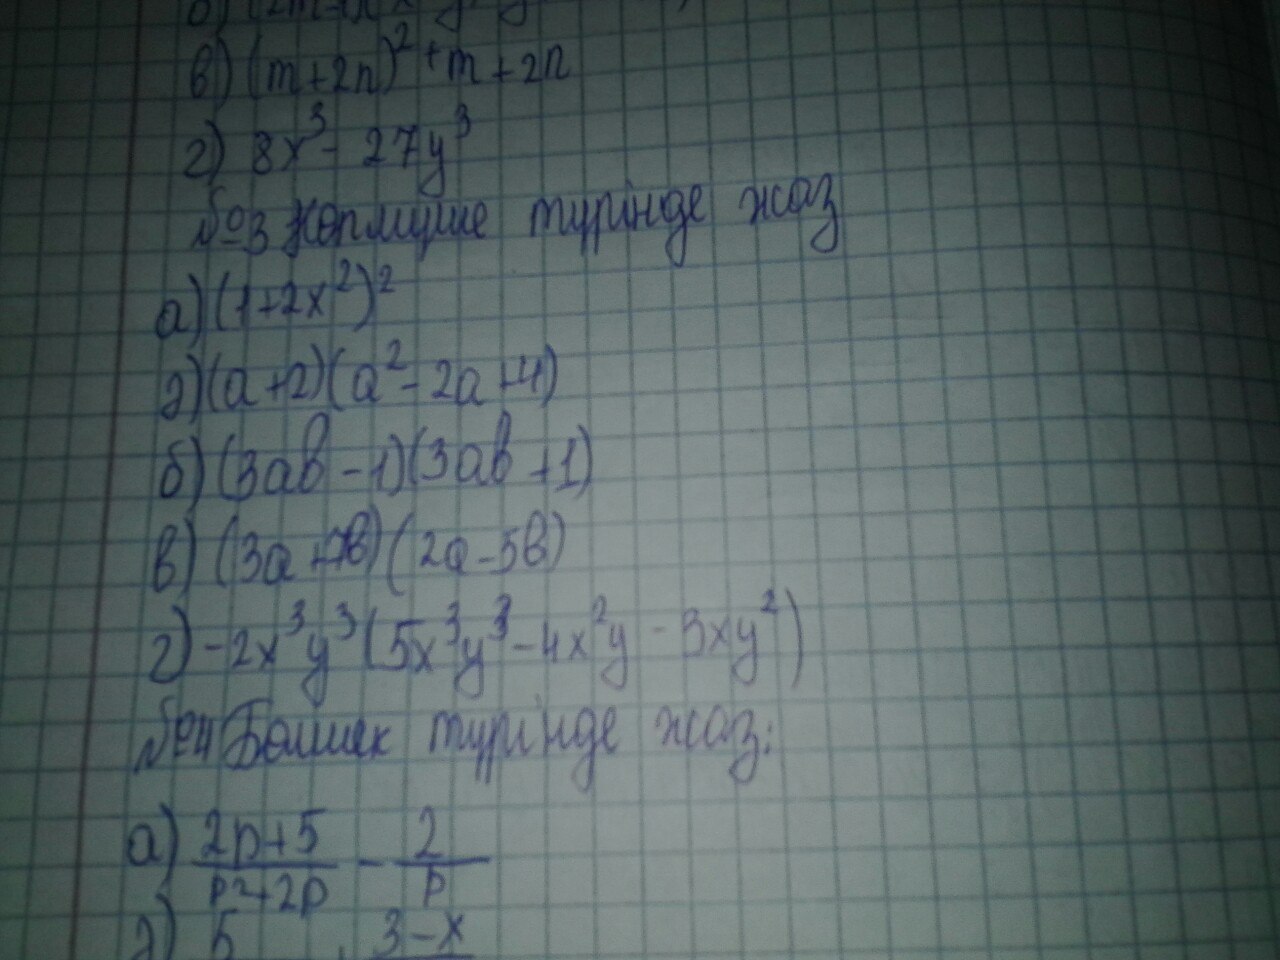 в) (m+2n)²+m+2n
г) 8x³-27y³
№3 Көпмүше түрінде жаз
а) (1+2x²)²
ә) (a+2)(a²-2a+4)
б) (3ab-1)(3ab+1)
в) (3a+7b)(2a-5b)
г) -2x³y³(5x³y³-4x²y-3xy²)
№4 Бөлшек түрінде жаз:
а) (2p+5)/(p²+2p) - 2/p
ә) 5 3-x